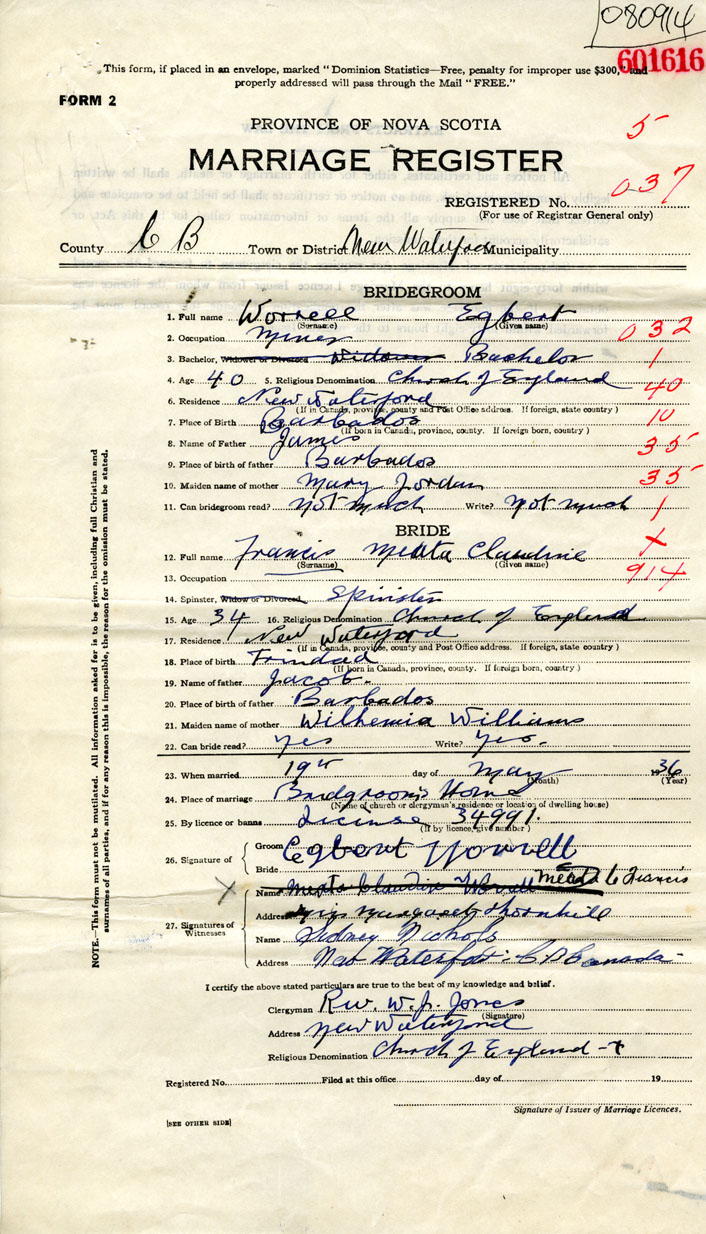 080914
601616
This form, if placed in an envelope, marked "Dominion Statistics—Free, penalty for improper use $300," and
properly addressed will pass through the Mail "FREE."
FORM 2
PROVINCE OF NOVA SCOTIA
5
MARRIAGE REGISTER
037
REGISTERED No.
(For use of Registrar General only)
County C B Town or District New Waterford Municipality
BRIDEGROOM
1. Full name Worrell Egbert
(Surname) (Given name)
2. Occupation Miner 032
3. Bachelor, Widower or Divorced Widower Bachelor 1
4. Age 40 5. Religious Denomination Church of England 40
6. Residence New Waterford
(If in Canada, province, county and Post Office address. If foreign, state country)
7. Place of Birth Barbados 10
(If born in Canada, province, county. If foreign born, country)
8. Name of Father James 35
9. Place of birth of father Barbados
10. Maiden name of mother Mary Jordan 35
11. Can bridegroom read? not much Write? not much 1
BRIDE
12. Full name Francis Meata Claudine X
(Surname) (Given name)
13. Occupation 914
14. Spinster, Widow or Divorced Spinister
15. Age 34 16. Religious Denomination Church of England
17. Residence New Waterford
(If in Canada, province, county and Post Office address. If foreign, state country)
18. Place of birth Trindad
(If born in Canada, province, county. If foreign born, country)
19. Name of father Jacob.
20. Place of birth of father Barbados
21. Maiden name of mother Wilhemia Williams
22. Can bride read? Yes Write? Yes.
23. When married 19th day of May 1936
(Month) (Year)
24. Place of marriage Bridgroom's Home
(Name of church or clergyman's residence or location of dwelling house)
25. By licence or banns License 34991.
(If by licence, give number)
26. Signature of Groom Egbert Worrell
Bride
X Name Meata Claudine Worrell Meata C Francis
Address Margaret Thornhill
27. Signatures of Witnesses
Name Sidney Nichols
Address New Waterford C B Canada
I certify the above stated particulars are true to the best of my knowledge and belief.
Clergyman Rev. W. J. Jones
(Signature)
Address New Waterford
Religious Denomination Church of England
Registered No. Filed at this office day of 19
Signature of Issuer of Marriage Licences.
[SEE OTHER SIDE]
NOTE.—This form must not be mutilated. All information asked for is to be given, including full Christian and
surnames of all parties, and if for any reason this is impossible, the reason for the omission must be stated.